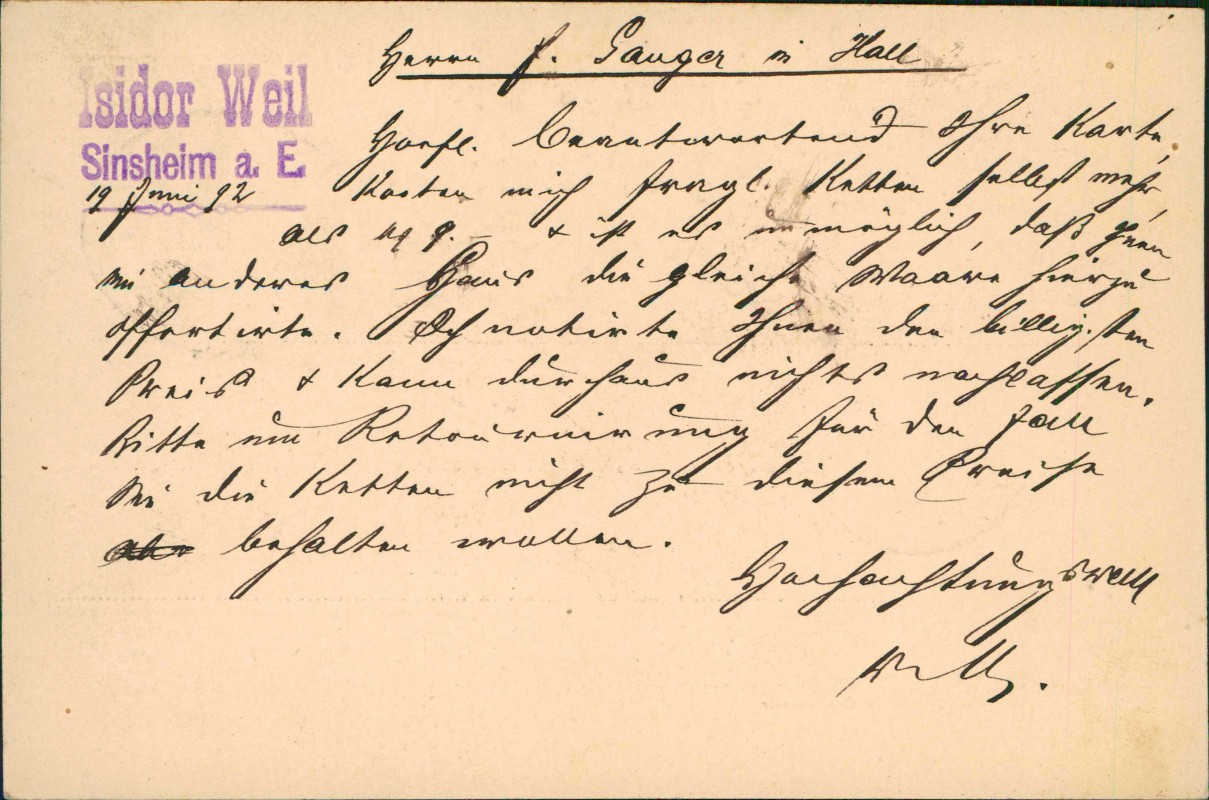 Isidor Weil
Sinsheim a. E.
19 Juni 92
Herrn F. Gauger in Hall
Höfl. beantwortend Ihre Karte,
kosten mich fragl. Ketten selbst mehr,
als M 9.– & ist es unmöglich, daß Ihnen
ein anderes Haus die gleiche Waare hierzu
offerirte. Ich notirte Ihnen den billigsten
Preis & kann durchaus nichts nachlassen.
Bitte um Retournirung für den Fall
Sie die Ketten nicht zu diesem Preise
behalten wollen.
Hochachtungsvoll